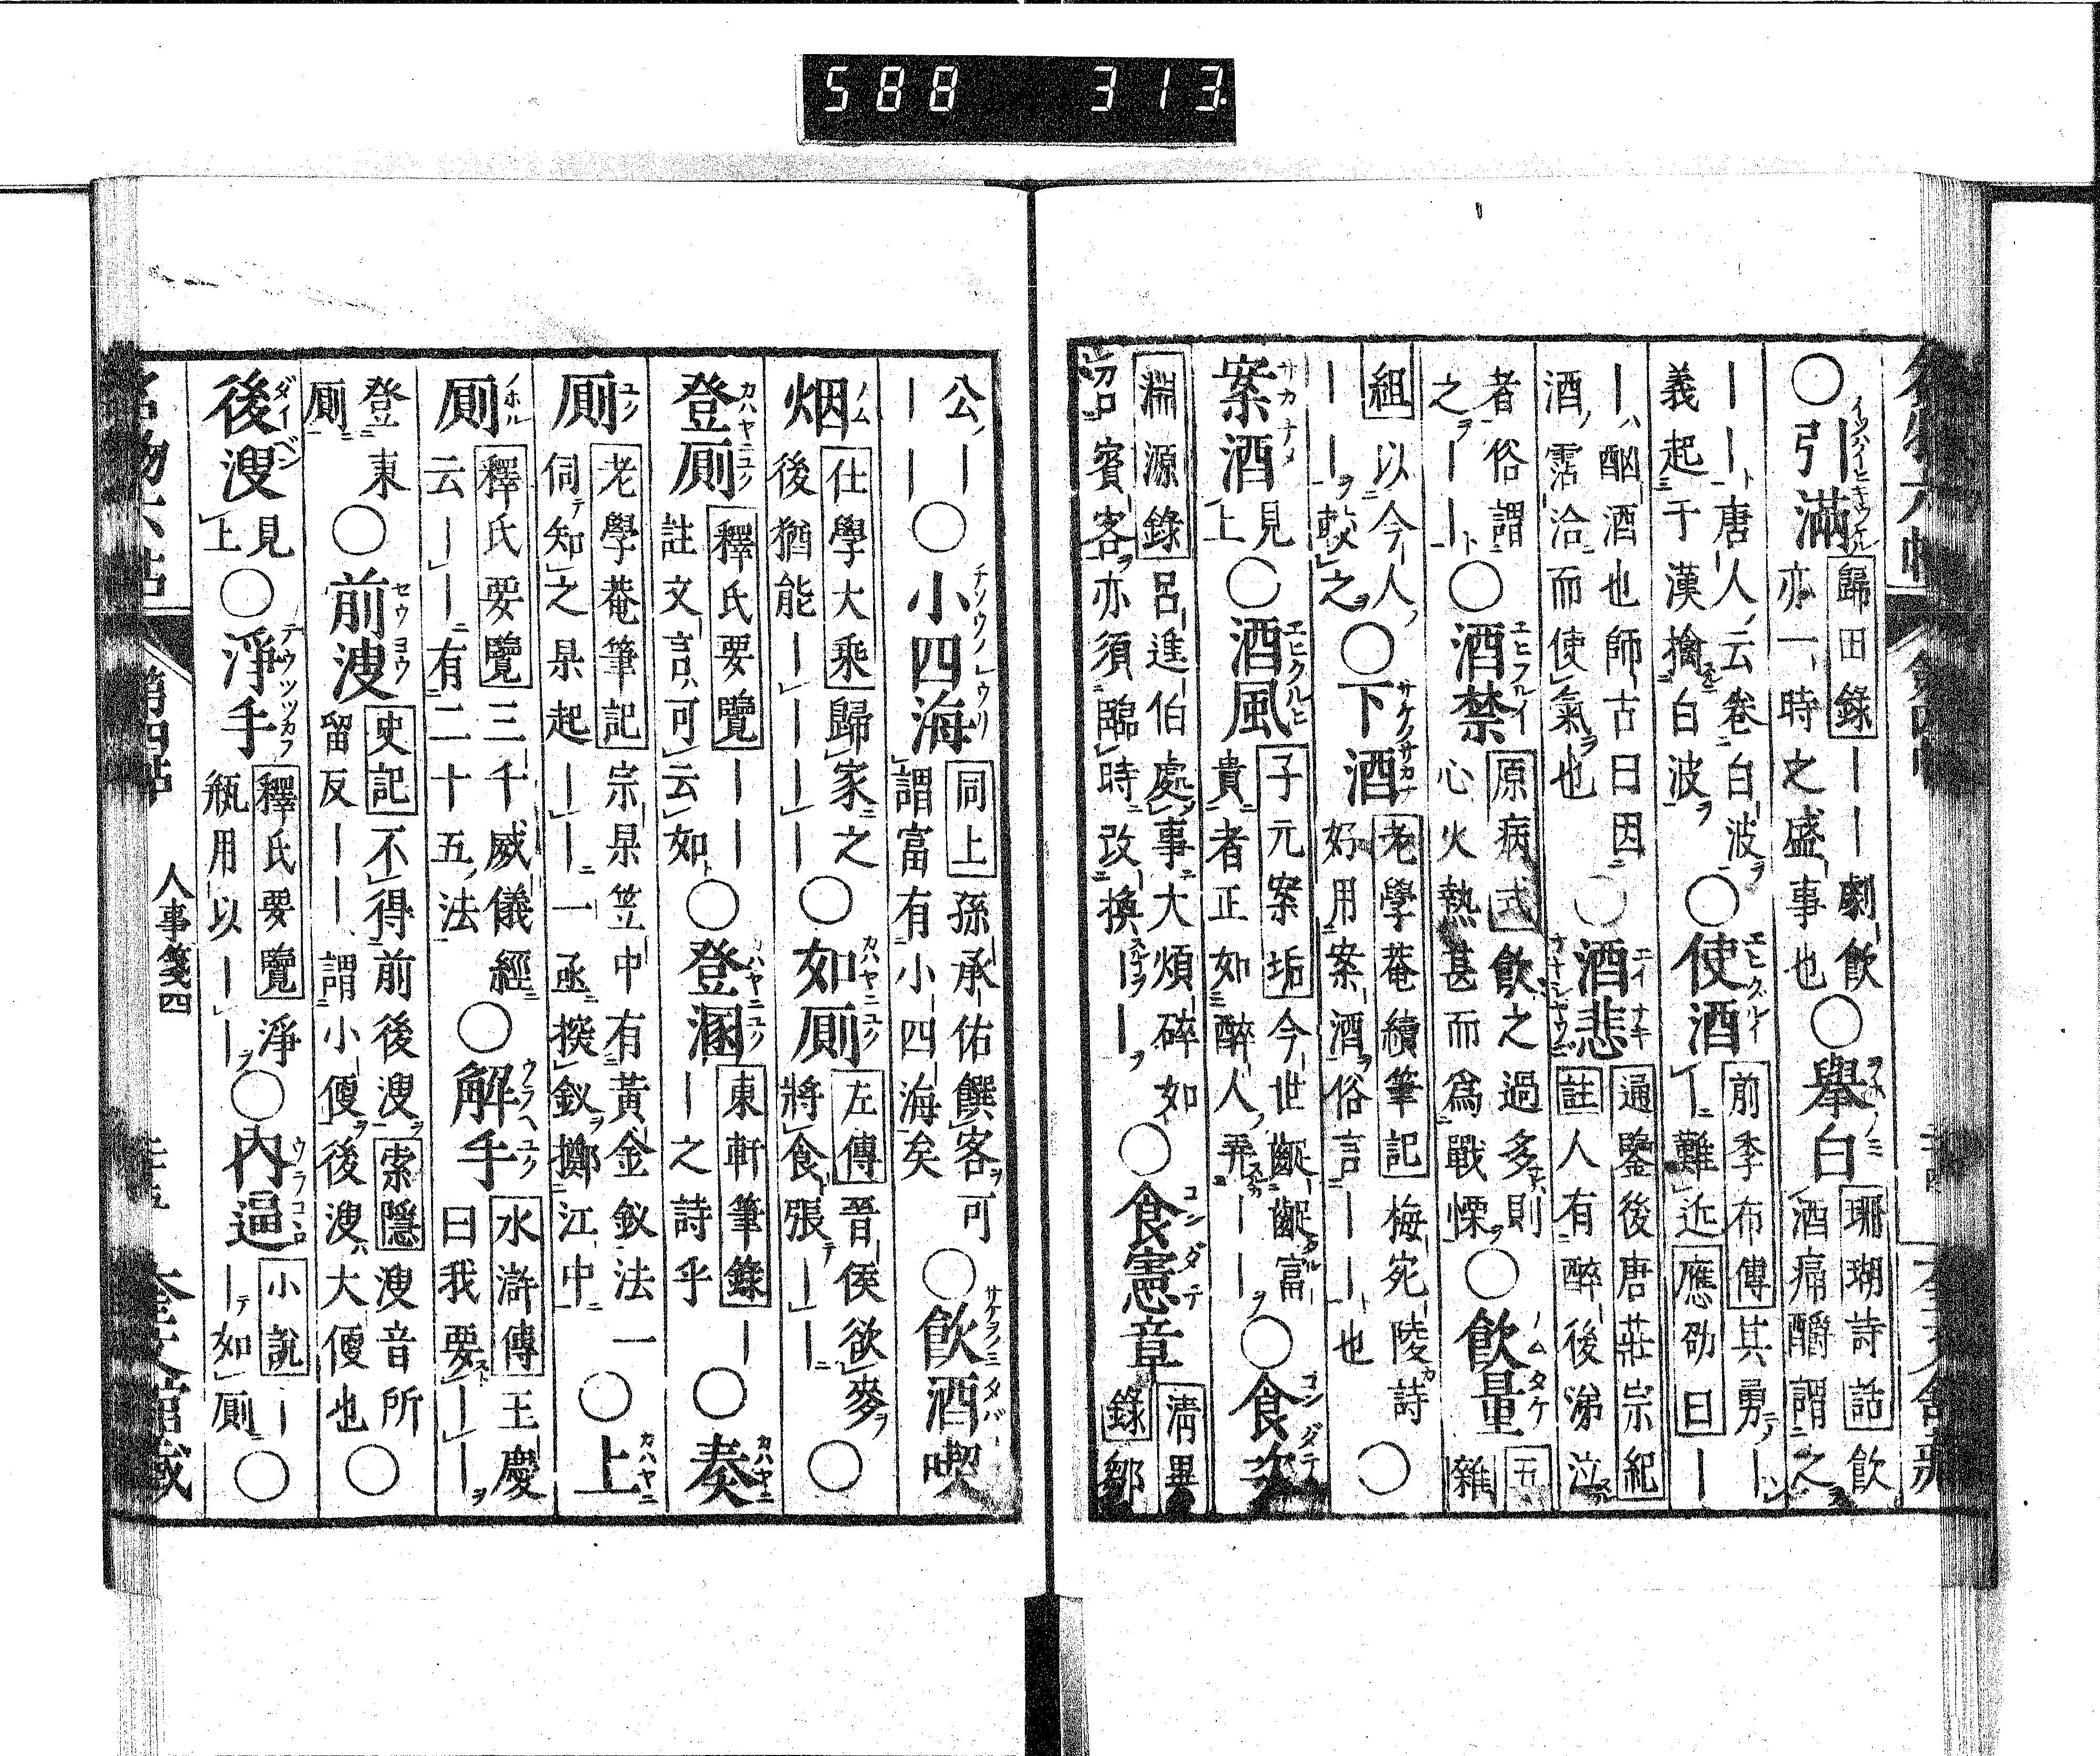 588 313.
○引滿 歸田錄 ｜｜劇飲亦一時之盛事也 ○擧白 珊瑚詩話 飲酒痛釂謂之
｜｜唐人云卷白波義起于漢擒白波 ○使酒 前季布傳 其勇｜｜難近 應劭曰 ｜
｜酗酒也師古曰因酒霑洽而使氣也 ○酒悲 通鑒後唐莊宗紀註 人有醉後涕泣
者俗謂之｜｜ ○酒禁 原病式 飲之過多則心火熱甚而爲戰慄 ○飲量 五雜
組 以今人｜｜較之 ○下酒 老學菴續筆記 梅宛陵詩好用案酒俗言｜｜也 ○
案酒 見上 ○酒風 子元案垢 今世齪齪富貴者正如醉人弄｜｜ ○食次
淵源錄 呂進伯處事大煩碎如沼賓客亦須臨時改換｜｜ ○食憲章 淸異錄 鄒
公｜｜｜ ○小四海 同上 孫承佑饌客可謂富有小四海矣 ○飲酒喫
烟 仕學大乘 歸家之後猶能｜｜｜｜ ○如厠 左傳 晉侯欲麥將食張｜｜ ○
登厠 釋氏要覽 ｜｜註文言可云如 ○登溷 東軒筆錄 ｜｜之詩乎 ○奏
厠 老學菴筆記 宗杲笠中有黃金釵法一伺知之杲起｜｜一亟撲釵擲江中 ○上
厠 釋氏要覽 三千威儀經云｜｜有二十五法 ○解手 水滸傳 王慶曰我要｜｜
登東厠 ○前溲 史記 不得前後溲 索隱 溲音所留反｜｜謂小便後溲大便也 ○
後溲 見上 ○淨手 釋氏要覽 淨瓶用以｜｜ ○內逼 小說 ｜｜如厠 ○
人事箋四